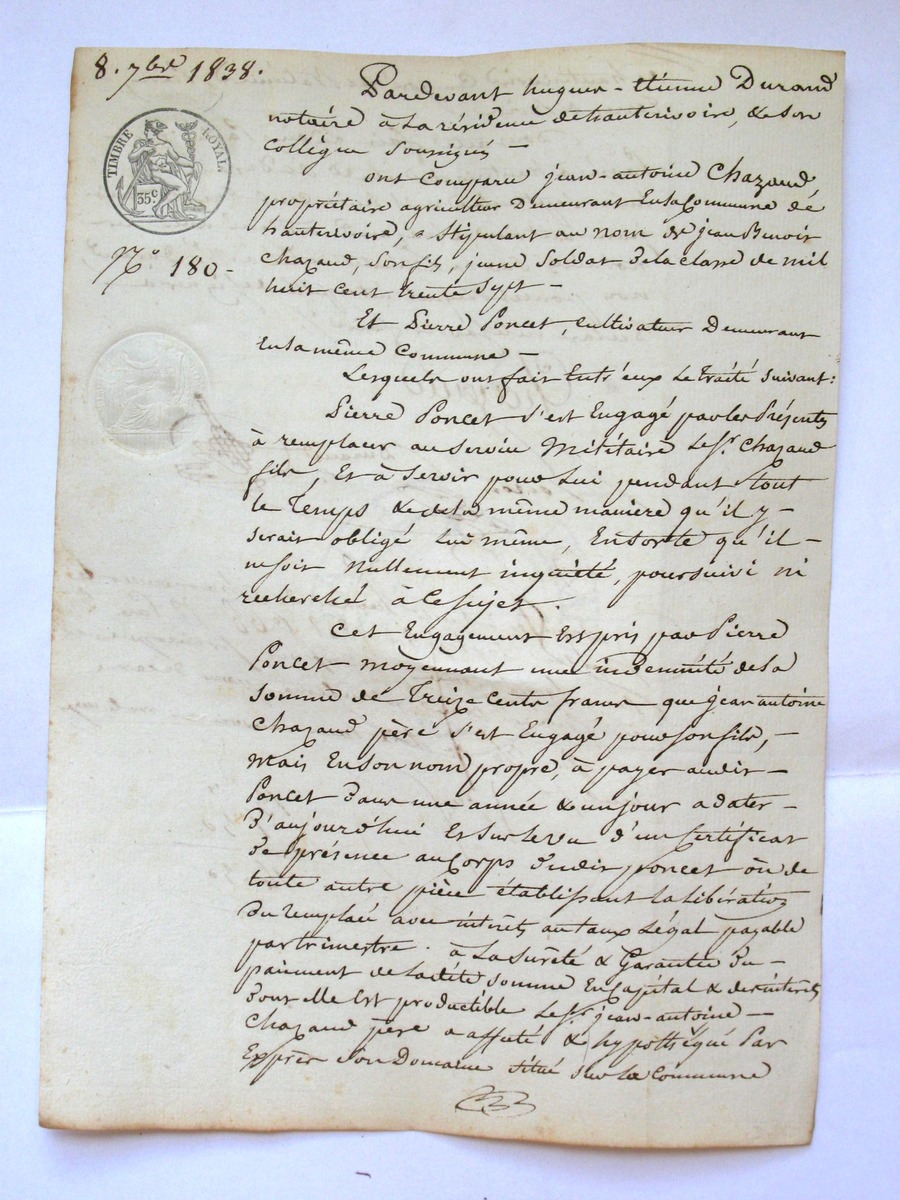 8. 7bre 1838.
TIMBRE ROYAL.
35c
N° 180 -
Pardevant hugues-étienne Durand
notaire à la résidence de hauterivoire, & son
Collègue Soussignés —
ont Comparu jean-antoine Chazaud,
propriétaire agriculteur Demeurant En la Commune de
hauterivoire, Stipulant au nom de jean Benoit
Chazaud, Son fils, jeune Soldat de la classe de mil
huit cent trente Sept -
Et Pierre Poncet, Cultivateur Demeurant
En la même Commune —
Lesquels ont fait Entr'eux Le traité Suivant:
Pierre Poncet S'est Engagé par les Présentes
à remplacer au Service Militaire Le Sr. Chazaud
fils, Et à Servir pour Lui pendant tout
le Temps & de la même manière qu'il y -
serait obligé Lui même, En Sorte qu'il -
ne soit Nullement inquiété, poursuivi ni
recherché à Ce sujet.
Cet Engagement Est pris par Pierre
Poncet moyennant une indemnité de la
Somme de Treize Cents francs que jean antoine
Chazaud père S'est Engagé pour Son fils, -
Mais En Son nom propre, à payer audit -
Poncet dans une année & un jour a dater -
d'aujourd'hui Et Sur le vu d'un Certificat
de présence au Corps dudit poncet où de
toute autre pièce établissant la libération
du remplacé avec intérêts au taux Légal payable
par trimestre. à La Sûreté & Garantie du -
paiement de ladite Somme En Capital & des intérêts
dont elle Est productible Le Sr. jean-antoine —
Chazaud père a affecté & hypothéqué Par
Exprès Son Domaine situé Sur la Commune